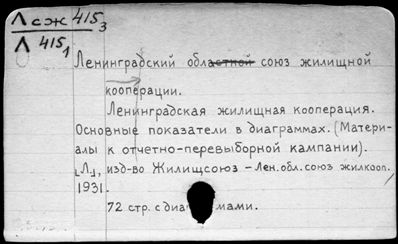 Лсж 415₃
Л 415₁
Ленинградский областной союз жилищной
кооперации.
Ленинградская жилищная кооперация.
Основные показатели в диаграммах. (Матери-
алы к отчетно-перевыборной кампании).
[Л.], изд-во Жилищсоюз – Лен. обл. союз жилкооп.,
1931.
72 стр. с диа мами.